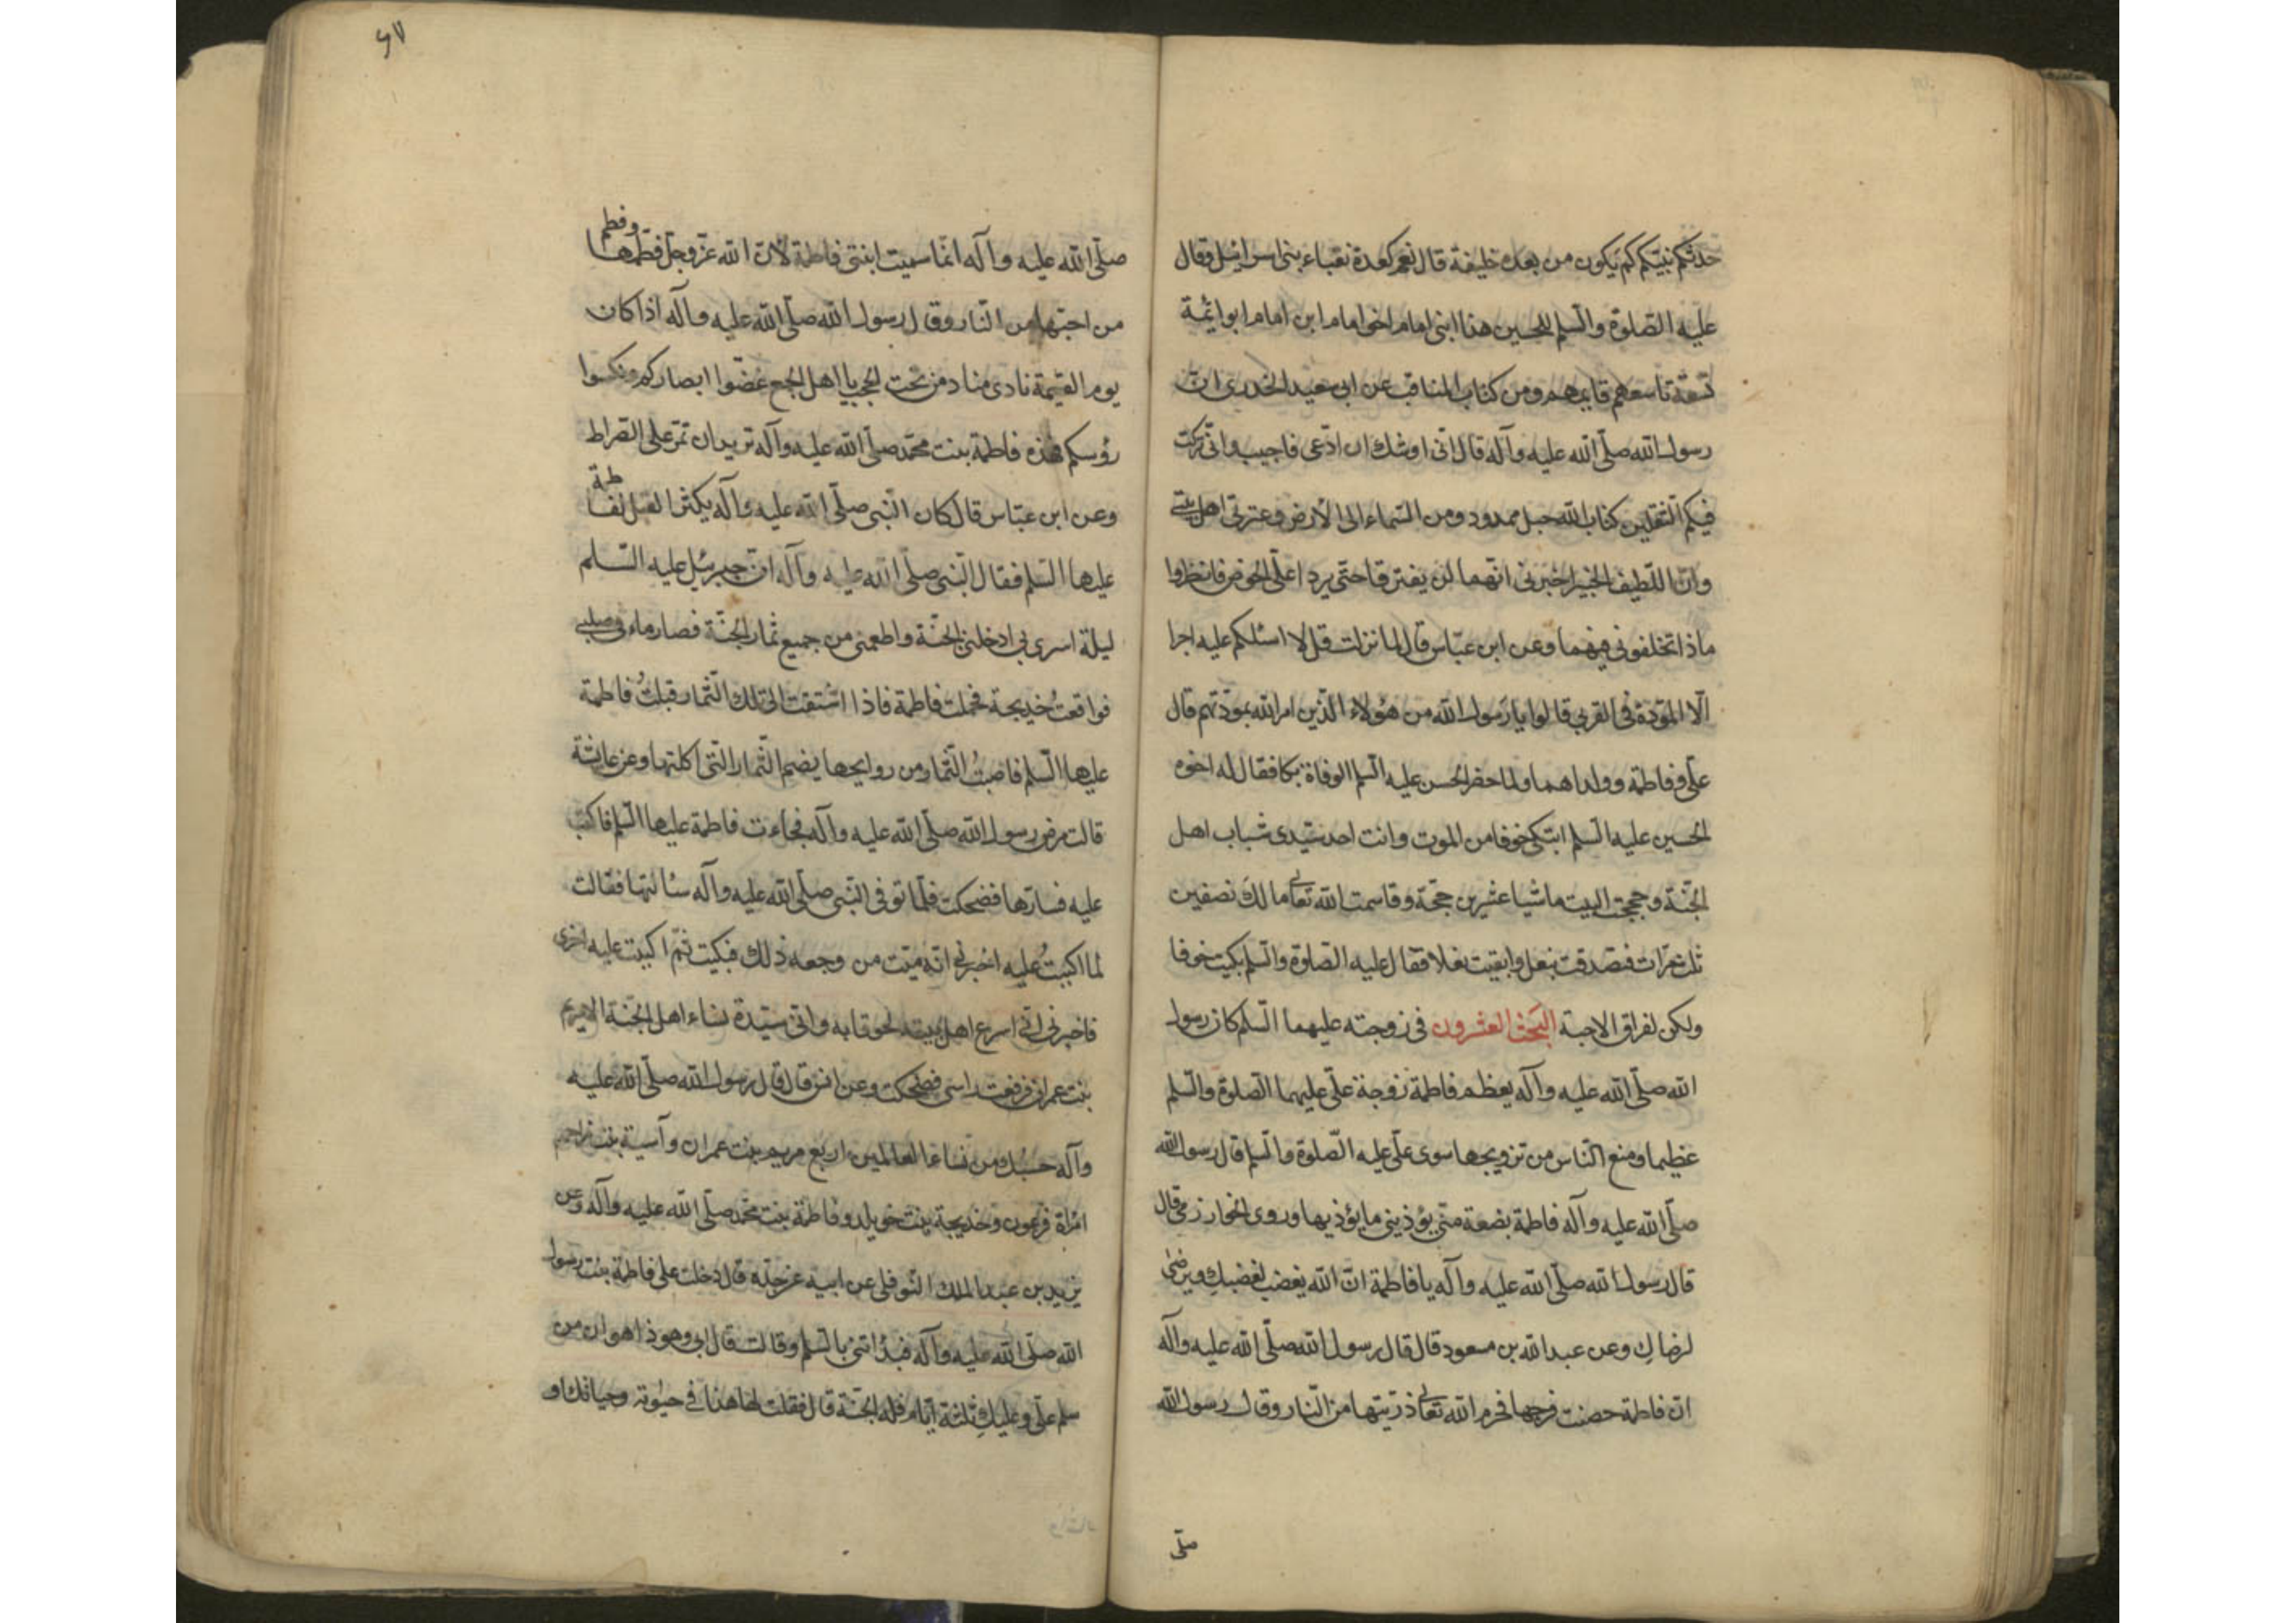 حدثكم نبيكم كم يكون من بعده خليفة قال نعم كعدة نقباء بنى اسرائيل وقال
عليه الصلوة والسلم للحسين هذا ابنى امام اخو امام ابن امام ابو ائمة
تسعة تاسعهم قايمهم ومن كتاب المناقب عن ابى سعيد الخدرى ان
رسول الله صلّى الله عليه وآله قال انّى اوشك ان ادّعى فاجيب وانّى تركت
فيكم الثقلين كتاب الله حبل ممدود ومن السّماء الى الارض وعترتى اهل بيتى
وان اللطيف الخبير اخبرنى انهما لن يفترقا حتّى يردا علىّ الحوض فانظروا
ماذا تخلفونى فيهما وعن ابن عبّاس قال لما نزلت قل لا اسئلكم عليه اجرا
الّا المودّة فى القربى قالوا يا رسول الله من هؤلاء الّذين امر الله بمودّتهم قال
علىّ وفاطمة وولداهما ولما حضر الحسن عليه السلم الوفاة بكا فقال له اخوه
الحسين عليه السلم ابتكى خوفا من الموت وانت احد سيّدى شباب اهل
الجنّة وحججت البيت ماشيا عشرين حجّة وقاسمت الله تعالى مالك نصفين
ثلث مرّات فتصدقت بنعل وابقيت نعلا فقال عليه الصلوة والسلم بكيت خوفا
ولكن لفراق الاحبة البحث العشرون فى زوجته عليهما السلم كان رسول
الله صلّى الله عليه وآله يعظم فاطمة زوجة علىّ عليهما الصلوة والسلم
عظيما ومنع الناس من تزويجها سوى علىّ عليه الصّلوة والسلم قال رسول الله
صلّى الله عليه وآله فاطمة بضعة منّى يؤذينى ما يؤذيها وروى الخوارزمى قال
قال رسول الله صلّى الله عليه وآله يا فاطمة انّ الله يغضب لغضبكِ ويرضى
لرضاكِ وعن عبد الله بن مسعود قال قال رسول الله صلّى الله عليه وآله
ان فاطمة حصنت فرجها فحرم الله تعالى ذرّيتها من النّار وقال رسول الله
صلّى
٦٧
صلّى الله عليه وآله انّما سميت ابنتى فاطمة لان الله عزّ وجلّ فطمها وفطم
من احبّها من النّار وقال رسول الله صلّى الله عليه وآله اذا كان
يوم القيمة نادى مناد من تحت الحجب يا اهل الجمع غضّوا ابصاركم ونكسوا
رؤسكم هذه فاطمة بنت محمّد صلّى الله عليه وآله تريد ان تمرّ على الصراط
وعن ابن عبّاس قال كان النّبى صلّى الله عليه وآله يكثر القبل لفاطمة
عليها السلم فقال النّبى صلّى الله عليه وآله انّ جبرئيل عليه السّلم
ليلة اسرى بى ادخلنى الجنّة واطعمنى من جميع ثمار الجنّة فصار ماء فى صلبى
فواقعتُ خديجة فحملت فاطمة فاذا اشتقت الى تلك الثّمار قبلتُ فاطمة
عليها السّلم فاصبتُ الثّمار من روايحها يضم الثّمار الّتى اكلتها وعن عائشة
قالت مرض رسول الله صلّى الله عليه وآله فجاءت فاطمة عليها السّلم فاكبت
عليه فسارّها فضحكت فلمّا توفى النّبى صلّى الله عليه وآله سئالتها فقالت
لما اكببتُ عليه اخبرنى انّه ميّت من وجعه ذلك فبكيت ثمّ اكببت عليه اخرى
فاخبرنى انّى اسرع اهل بيته لحوقا به وانّى سيّدة نساء اهل الجنّة الا مريم
بنت عمران فرفعت راسى فضحكت وعن انس قال قال رسول الله صلّى الله عليه
وآله حسبك من نساء العالمين اربع مريم بنت عمران وآسية بنت مزاحم
امرأة فرعون وخديجة بنت خويلد وفاطمة بنت محمّد صلّى الله عليه وآله وعن
يزيد بن عبد الملك النّوفلى عن ابيه عن جدّه قال دخلت على فاطمة بنت رسول
الله صلّى الله عليه وآله فبدأتنى بالسلم وقالت قال ابى وهو ذا هو ان من
سلم علىّ وعليكِ ثلثة ايّام فله الجنّة قال فقلت لها هذا فى حيوته وحياتك او